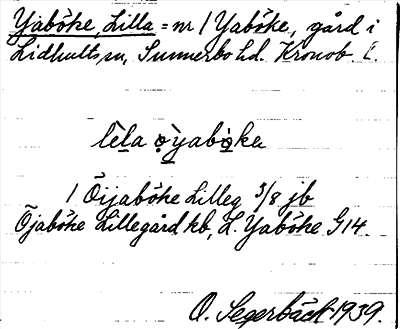 Yaböke, Lilla = nr 1 Yaböke, gård i
Lidhults sn, Sunnerbo hd. Kronob. l.
lela öyaböka
1 Öijaböke Lilleg 3/8 jb
Öjaböke Lillegård kb, L. Yaböke G14.
O. Segerbäck 1939.